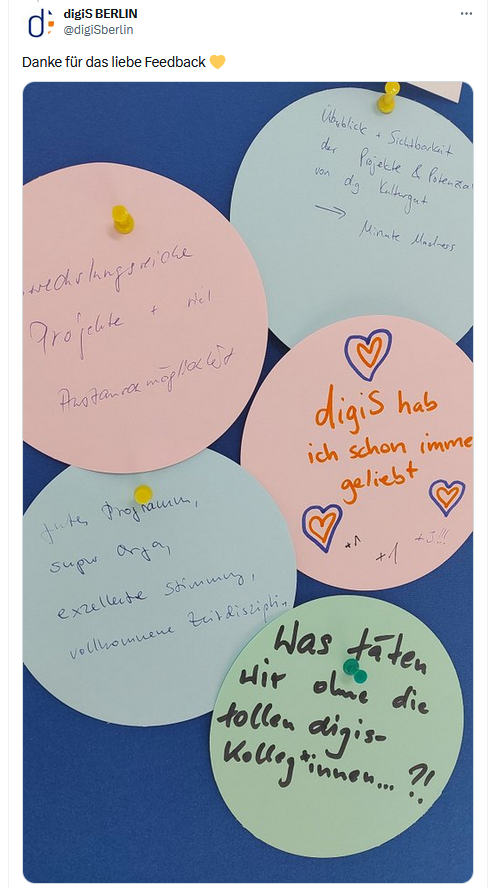 digiS BERLIN
@digiSberlin
Danke für das liebe Feedback 💛
Überblick + Sichtbarkeit
der Projekte & Potenzia
von dig Kulturgut
→ Minute Madness
wechslungsreiche
Projekte + viel
Austauschmöglichkeit
digiS hab
ich schon imme
geliebt
+1
+1
gutes Programm,
super Orga,
exzellente Stimmung,
vollkommene Zeitdisziplin
Was täten
wir ohne die
tollen digis-
Kolleg*innen... ?!